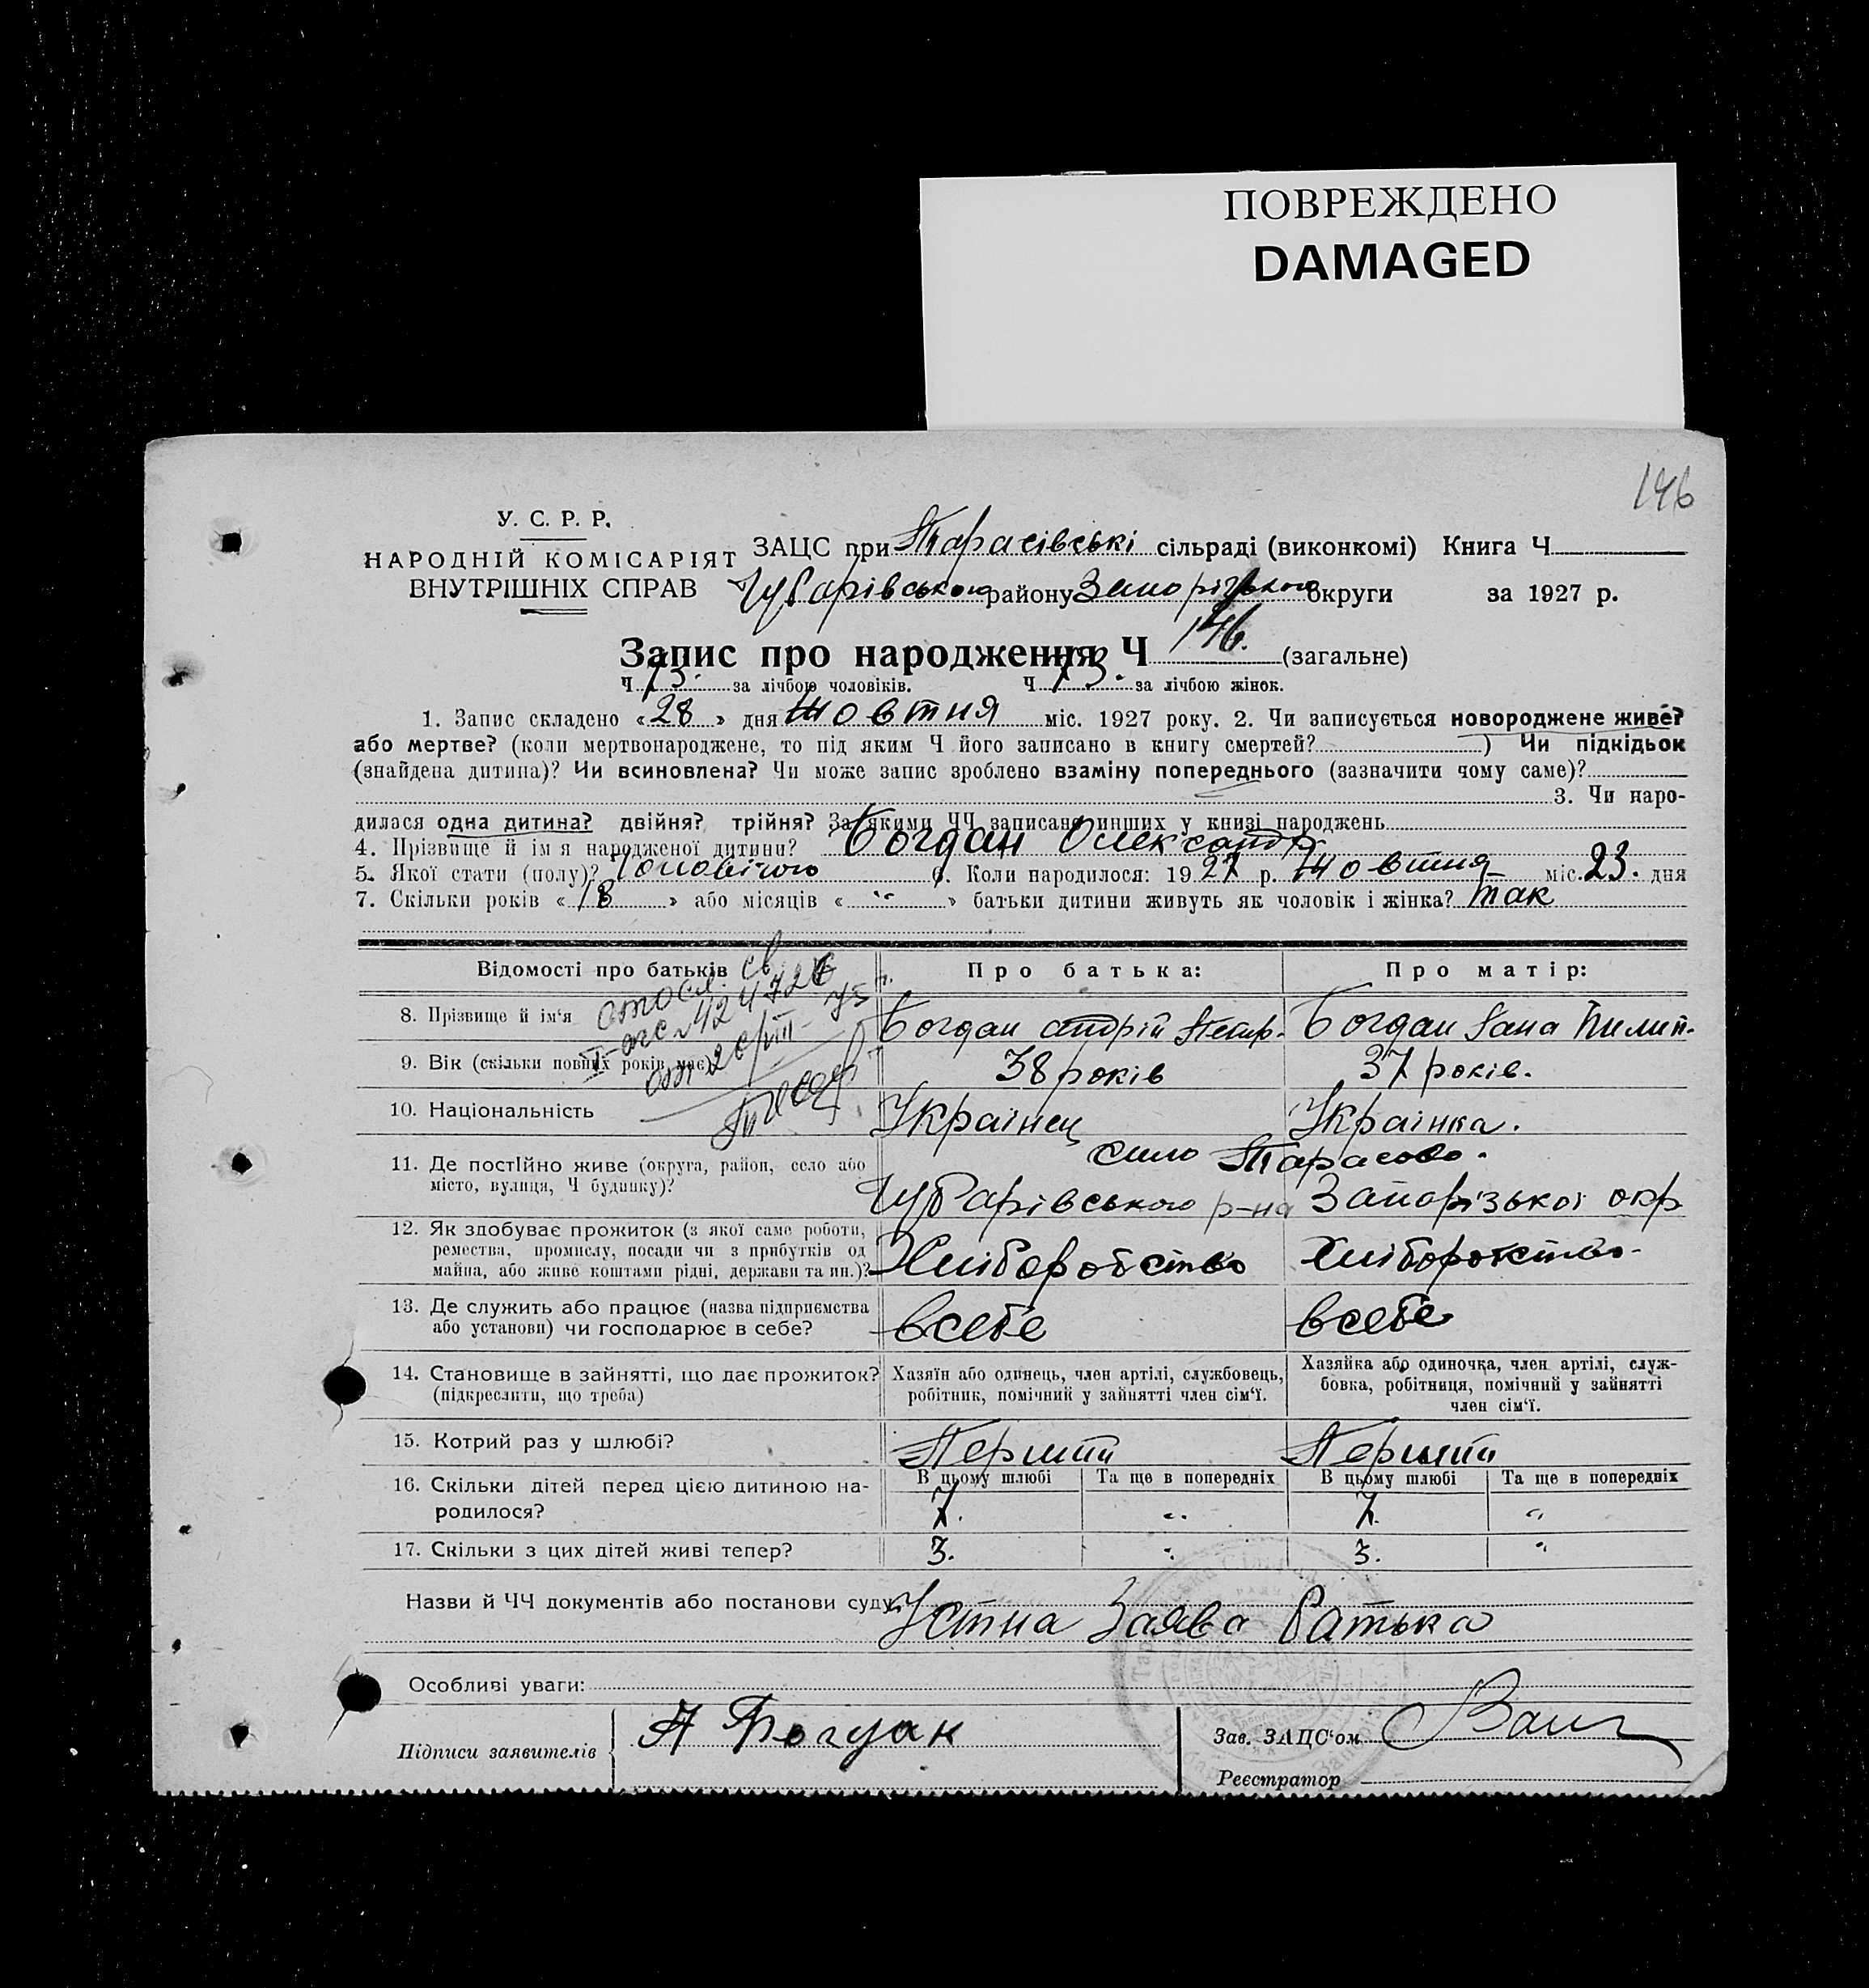 ПОВРЕЖДЕНО
DAMAGED
146
У. С. Р. Р.
НАРОДНІЙ КОМІСАРІЯТ
ВНУТРІШНІХ СПРАВ
ЗАЦС при Тарасівські сільраді (виконкомі) Книга Ч
Чубарівського району Запорізької округи за 1927 р.
Запис про народження Ч 146. (загальне)
Ч 73. за лічбою чоловіків. Ч 73. за лічбою жінок.
1. Запис складено «28» дня Жовтня міс. 1927 року. 2. Чи записується новороджене живе?
або мертве? (коли мертвонароджене, то під яким Ч його записано в книгу смертей? ) Чи підкідьок
(знайдена дитина)? Чи всиновлена? Чи може запис зроблено взаміну попереднього (зазначити чому саме)?
3. Чи наро-
дилася одна дитина? двійня? трійня? За якими ЧЧ записано инших у книзі народжень
4. Прізвище й ім я народженої дитини? Богдан Олександр
5. Якої стати (полу)? Чоловічого 6. Коли народилося: 1927 р. Жовтня міс. 23. дня
7. Скільки років «18» або місяців «» батьки дитини живуть як чоловік і жінка? так
Відомості про батьків Про батька: Про матір:
8. Прізвище й ім'я Богдан Андрій Петр. Богдан Ганна Пилип.
9. Вік (скільки повних років має) 38 років 37 років.
10. Національність Українец Українка.
село Тарасово.
11. Де постійно живе (округа, район, село або
місто, вулиця, Ч будинку)? Чубарівського р-на Запорізької окр
12. Як здобуває прожиток (з якої саме роботи,
ремества, промислу, посади чи з прибутків од
майна, або живе коштами рідні, держави та ин.)? Хліборобство Хліборобство.
13. Де служить або працює (назва підприємства
або установи) чи господарює в себе? всебе всебе
14. Становище в зайнятті, що дає прожиток?
(підкреслити, що треба)
Хазяїн або одинець, член артілі, службовець,
робітник, помічний у зайнятті член сім'ї.
Хазяйка або одиночка, член артілі, служ-
бовка, робітниця, помічний у зайнятті
член сім'ї.
15. Котрий раз у шлюбі? Перший Перший
16. Скільки дітей перед цією дитиною на-
родилося?
В цьому шлюбі Та ще в попередніх В цьому шлюбі Та ще в попередніх
7. 7.
17. Скільки з цих дітей живі тепер? 3. 3.
Назви й ЧЧ документів або постанови суду
Устна Заява батька
Особливі уваги:
Підписи заявителів А Богдан
Зав. ЗАЦС'ом
Реєстратор